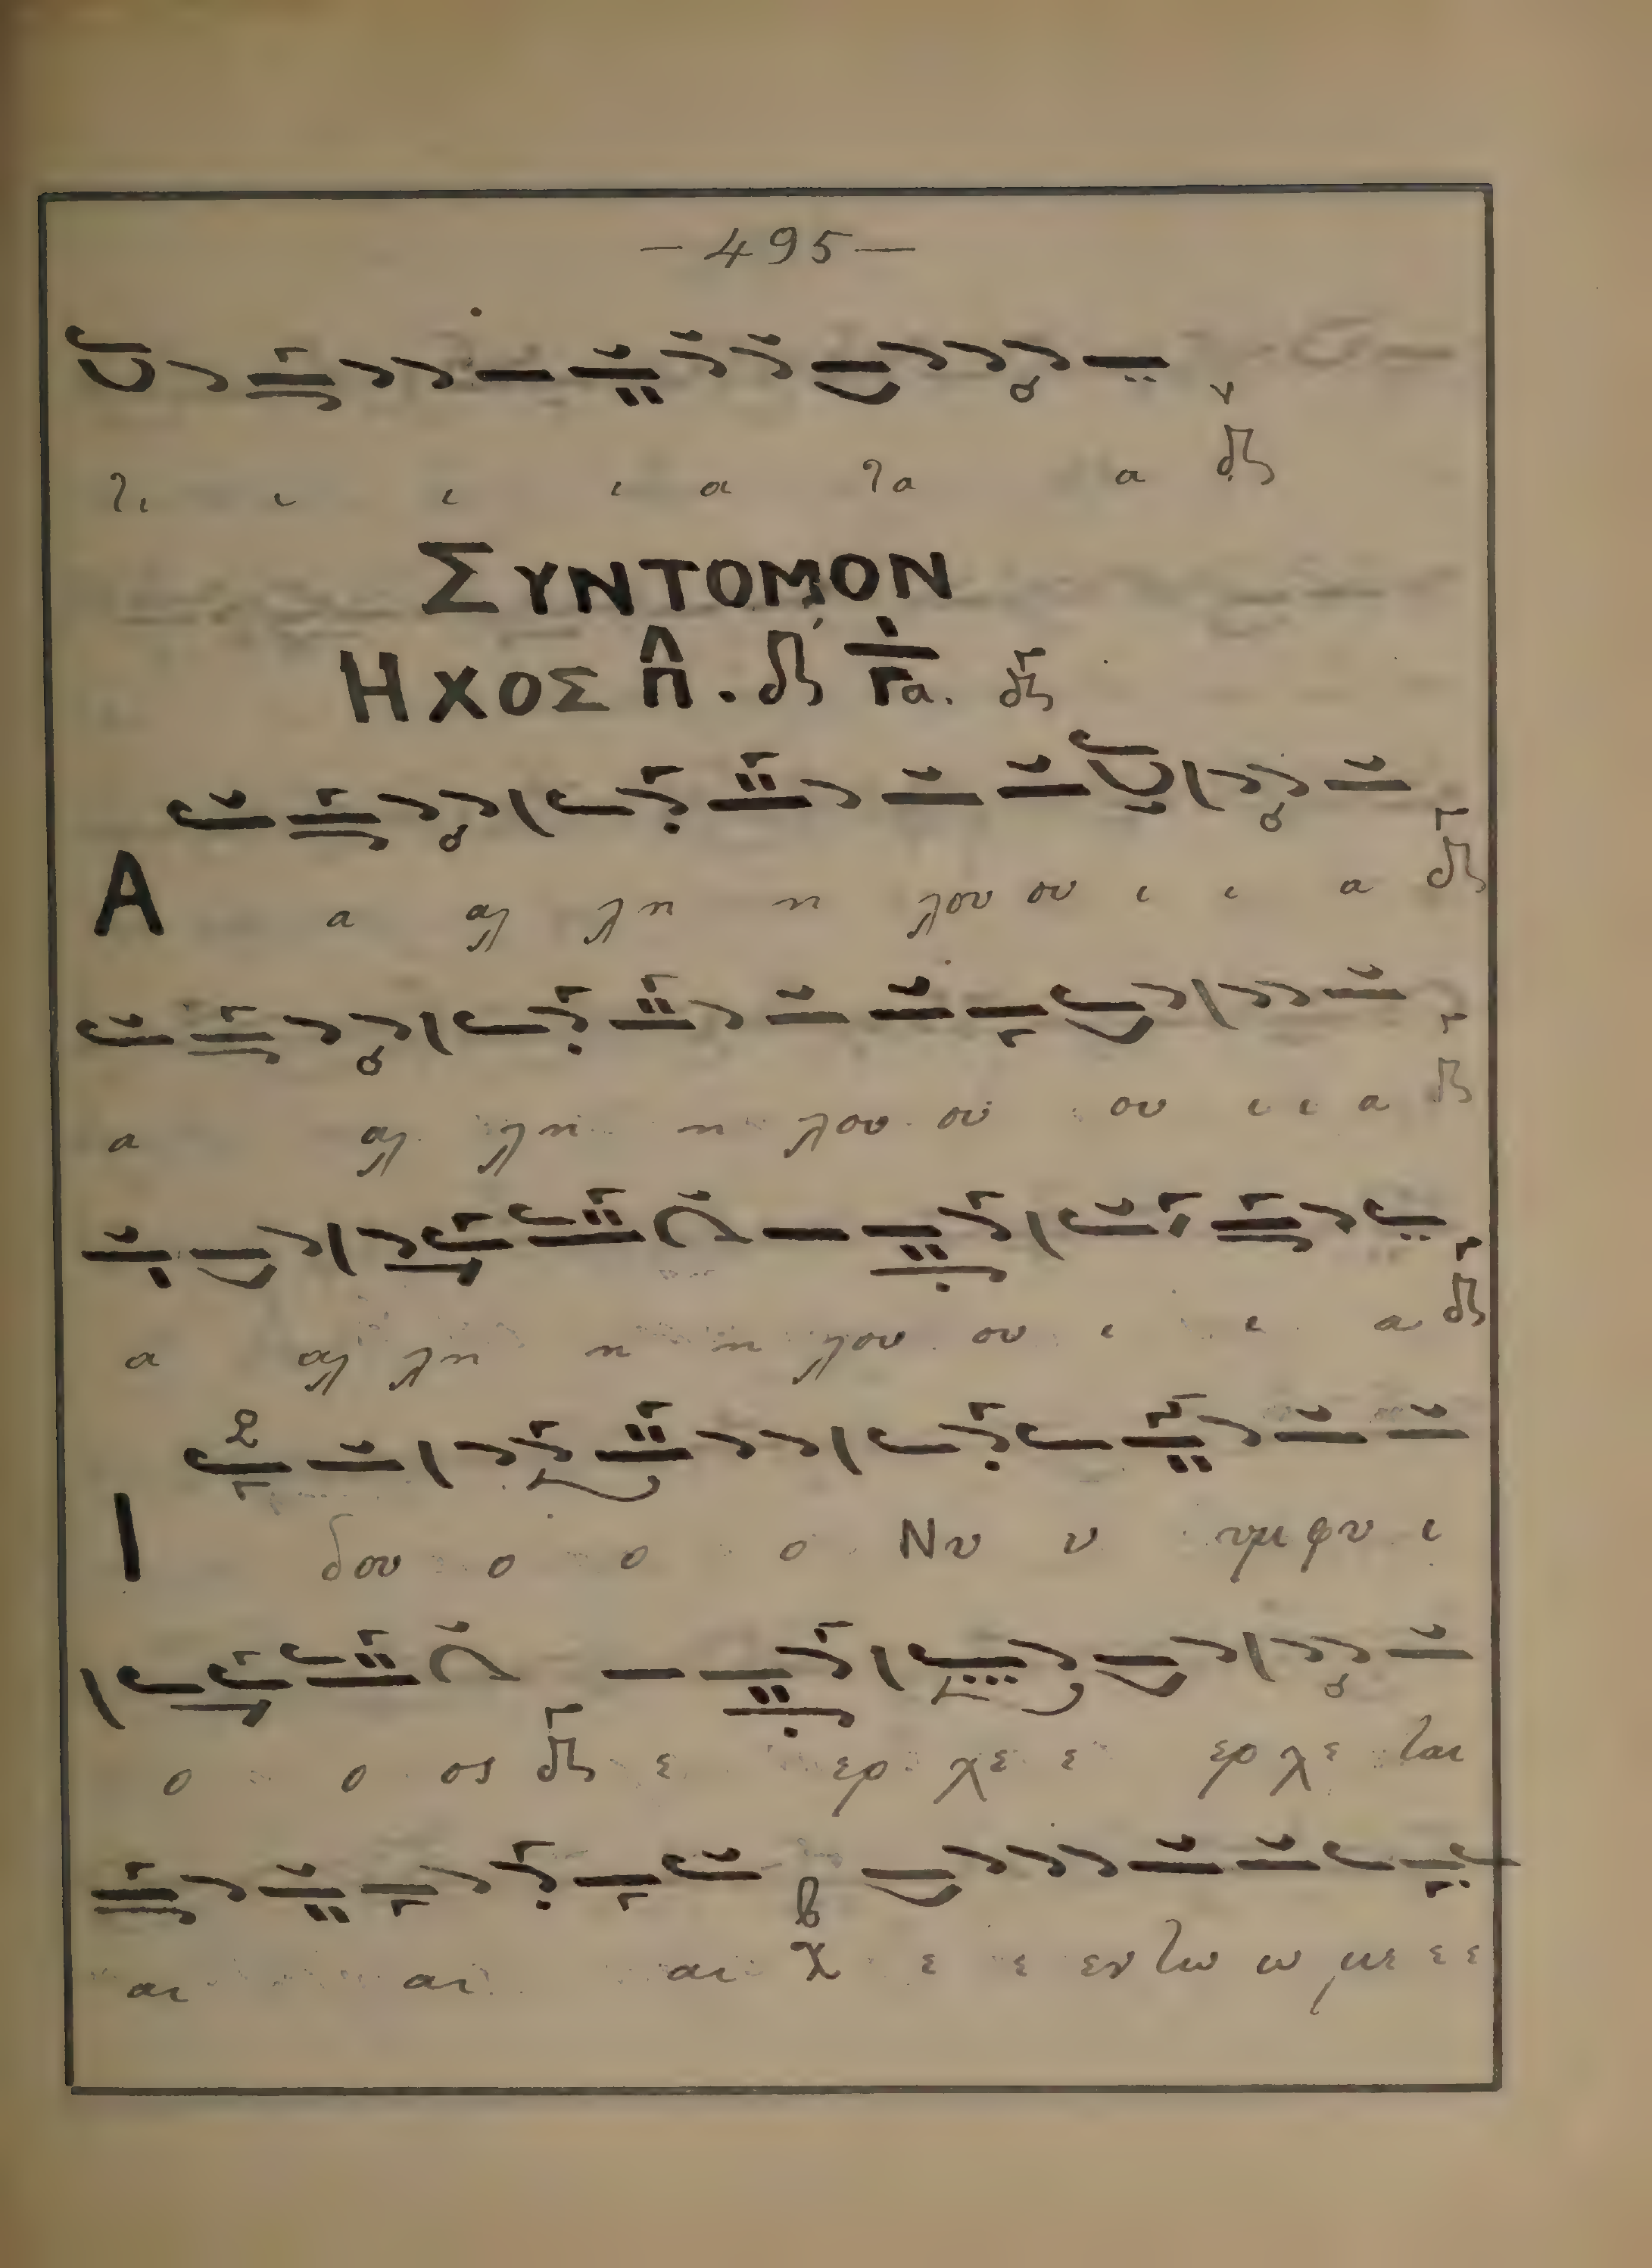 — 495 —
τι ι ι ι α τα α
ΣΥΝΤΟΜΟΝ
ΗΧΟΣ Π. Γα.
Α α αλ λη η λου ου ι ι α
α αλ λη η λου ου ου ι ι α
α αλ λη η η λου ου ι ι α
Ι δου ο ο ο Νυ υ υμφυ ι
ο ο ος ε ερ χε ε ερ χε ται
αι αι αι ε ε εν τω ω με ε ε